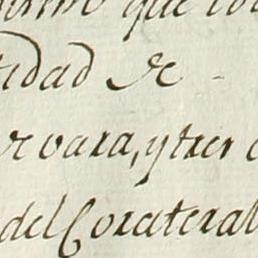 que
tidad de
vara, y tres
del Corateral